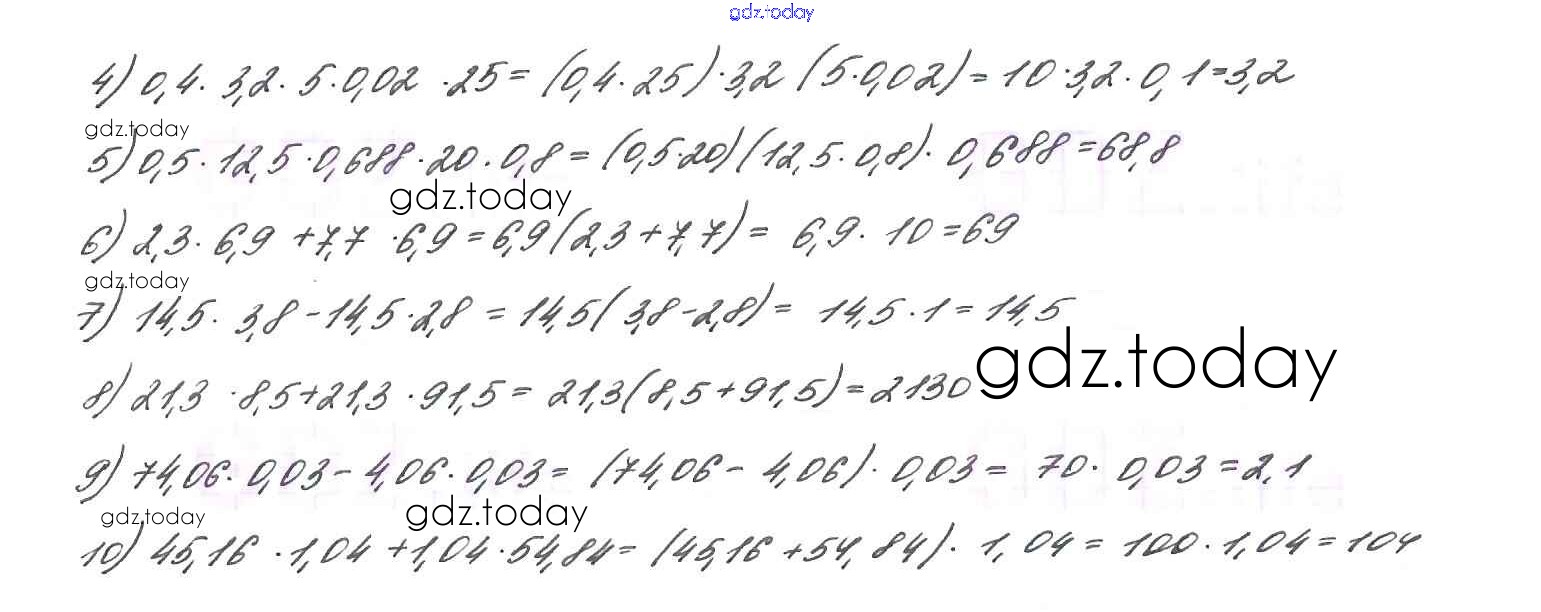 gdz.today
4) 0,4 · 3,2 · 5 · 0,02 · 25 = (0,4 · 25) · 3,2 (5 · 0,02) = 10 · 3,2 · 0,1 = 3,2
gdz.today
5) 0,5 · 12,5 · 0,688 · 20 · 0,8 = (0,5 · 20) (12,5 · 0,8) · 0,688 = 68,8
gdz.today
6) 2,3 · 6,9 + 7,7 · 6,9 = 6,9 (2,3 + 7,7) = 6,9 · 10 = 69
gdz.today
7) 14,5 · 3,8 - 14,5 · 2,8 = 14,5 (3,8 - 2,8) = 14,5 · 1 = 14,5
gdz.today
8) 21,3 · 8,5 + 21,3 · 91,5 = 21,3 (8,5 + 91,5) = 2130
9) 74,06 · 0,03 - 4,06 · 0,03 = (74,06 - 4,06) · 0,03 = 70 · 0,03 = 2,1
gdz.today
gdz.today
10) 45,16 · 1,04 + 1,04 · 54,84 = (45,16 + 54,84) · 1,04 = 100 · 1,04 = 104